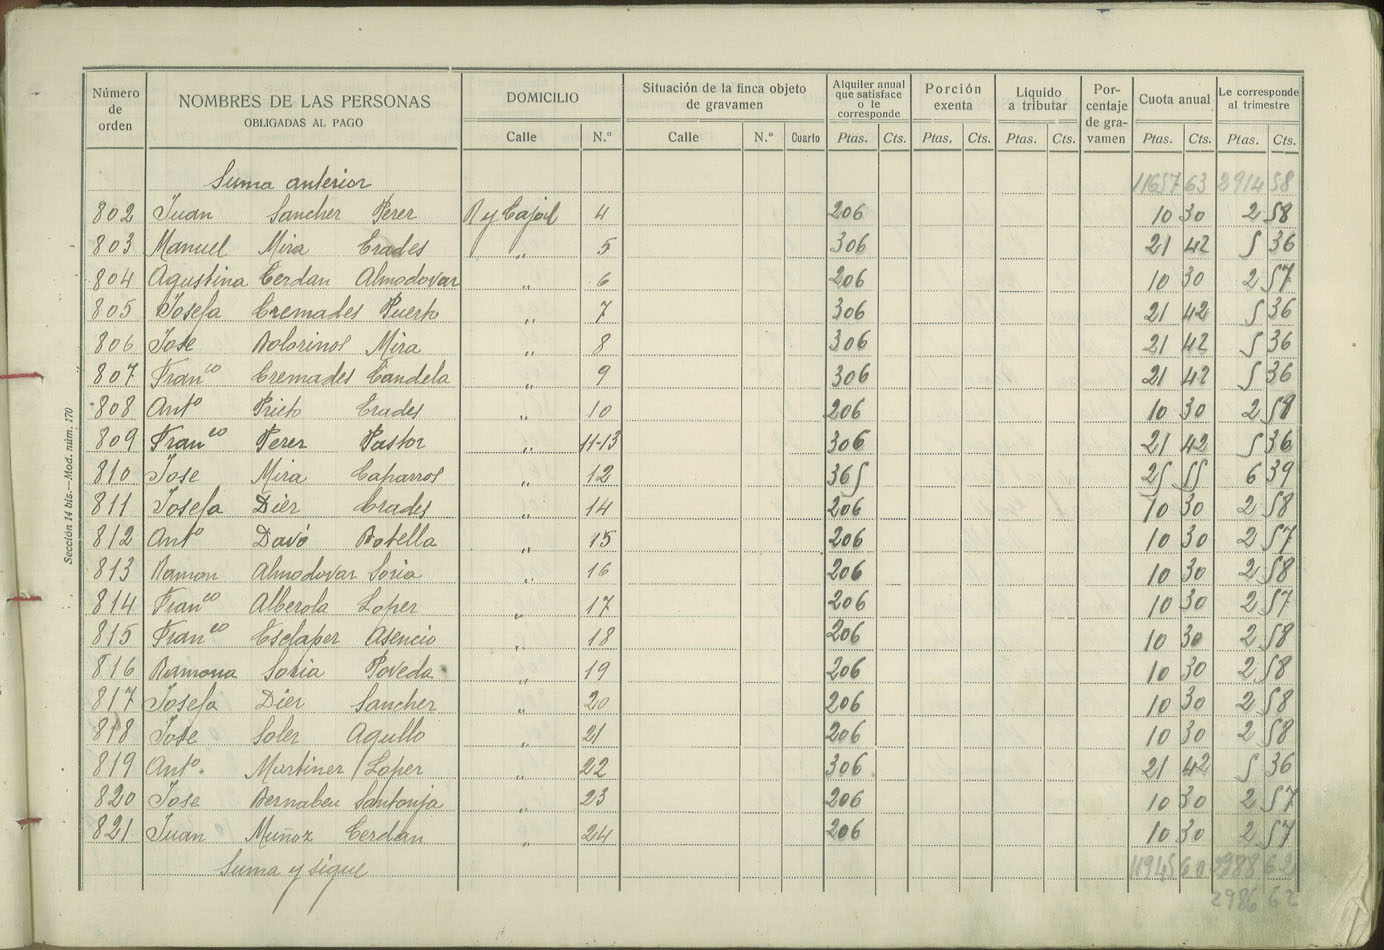 Número de orden NOMBRES DE LAS PERSONAS OBLIGADAS AL PAGO DOMICILIO Situación de la finca objeto de gravamen Alquiler anual que satisface o le corresponde Porción exenta Líquido a tributar Por- centaje de gra- vamen Cuota anual Le corresponde al trimestre
Calle N.º Calle N.º Cuarto Ptas. Cts. Ptas. Cts. Ptas. Cts. Ptas. Cts. Ptas. Cts.
Suma anterior 11657 63 2914 58
802 Juan Sancher Perer R y Cajal 4 206 10 30 2 58
803 Manuel Mira Erades " 5 306 21 42 5 36
804 Agustina Cerdan Almodovar " 6 206 10 30 2 57
805 Josefa Cremades Puerto " 7 306 21 42 5 36
806 Jose Bolorinos Mira " 8 306 21 42 5 36
807 Franco Cremades Candela " 9 306 21 42 5 36
808 Anto Prieto Erades " 10 206 10 30 2 58
809 Franco Perer Pastor " 11-13 306 21 42 5 36
810 Jose Mira Caparros " 12 365 25 55 6 39
811 Josefa Dier Erades " 14 206 10 30 2 58
812 Anto Davó Botella " 15 206 10 30 2 57
813 Ramon Almodovar Soria " 16 206 10 30 2 58
814 Franco Alberola Loper " 17 206 10 30 2 57
815 Franco Esclaper Asencio " 18 206 10 30 2 58
816 Ramona Soria Poveda " 19 206 10 30 2 58
817 Josefa Dier Sancher " 20 206 10 30 2 58
818 Jose Soler Agullo " 21 206 10 30 2 58
819 Anto. Martiner Loper " 22 306 21 42 5 36
820 Jose Bernabeu Santonja " 23 206 10 30 2 57
821 Juan Muñoz Cerdan " 24 206 10 30 2 57
Suma y sigue 11945 60 2988 62
2986 62
Sección 14 bis.—Mod. núm. 170